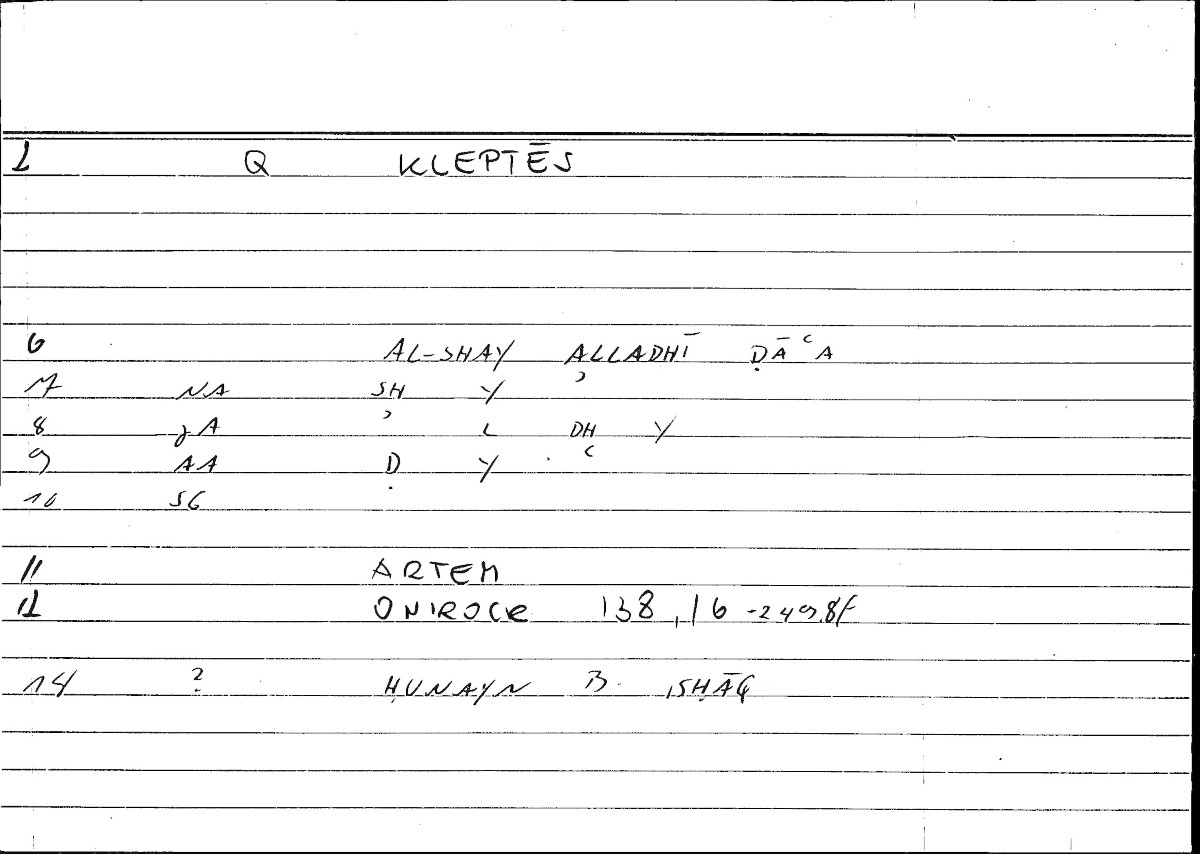 1 Q KLEPTĒS
6 AL-SHAY ALLADHĪ ḌĀʿA
7 NA SH Y ʾ
8 gA ʾ L DH Y
9 AA Ḍ Y ʿ
10 SG
11 ARTEM
12 ONIROCR 138,16 -249,8f
14 ? ḤUNAYN B. ISḤĀQ